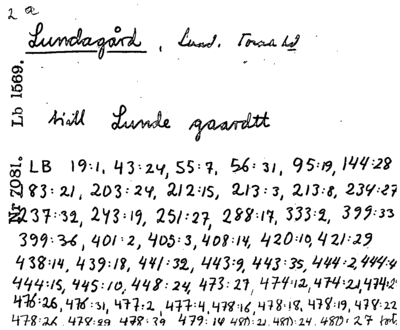 2
Lundagård, Lund. Torna hd
Lb 1569.
Lunde gaardtt
Nr 7081.
LB 19:1, 43:24, 55:7, 56:31, 95:19, 144:28
83:21, 203:24, 212:15, 213:3, 213:8, 234:27
237:32, 243:19, 251:27, 288:17, 333:2, 399:33
399:36, 401:2, 405:3, 408:14, 420:10, 421:29
438:14, 439:18, 441:32, 443:9, 443:35, 444:2, 444:4
444:15, 445:10, 448:24, 473:27, 474:12, 474:21, 474:2
476:26, 476:31, 477:2, 477:4, 478:16, 478:18, 478:19, 478:22
478:26, 478:29, 478:39, 479:14, 480:21, 480:24, 480:27